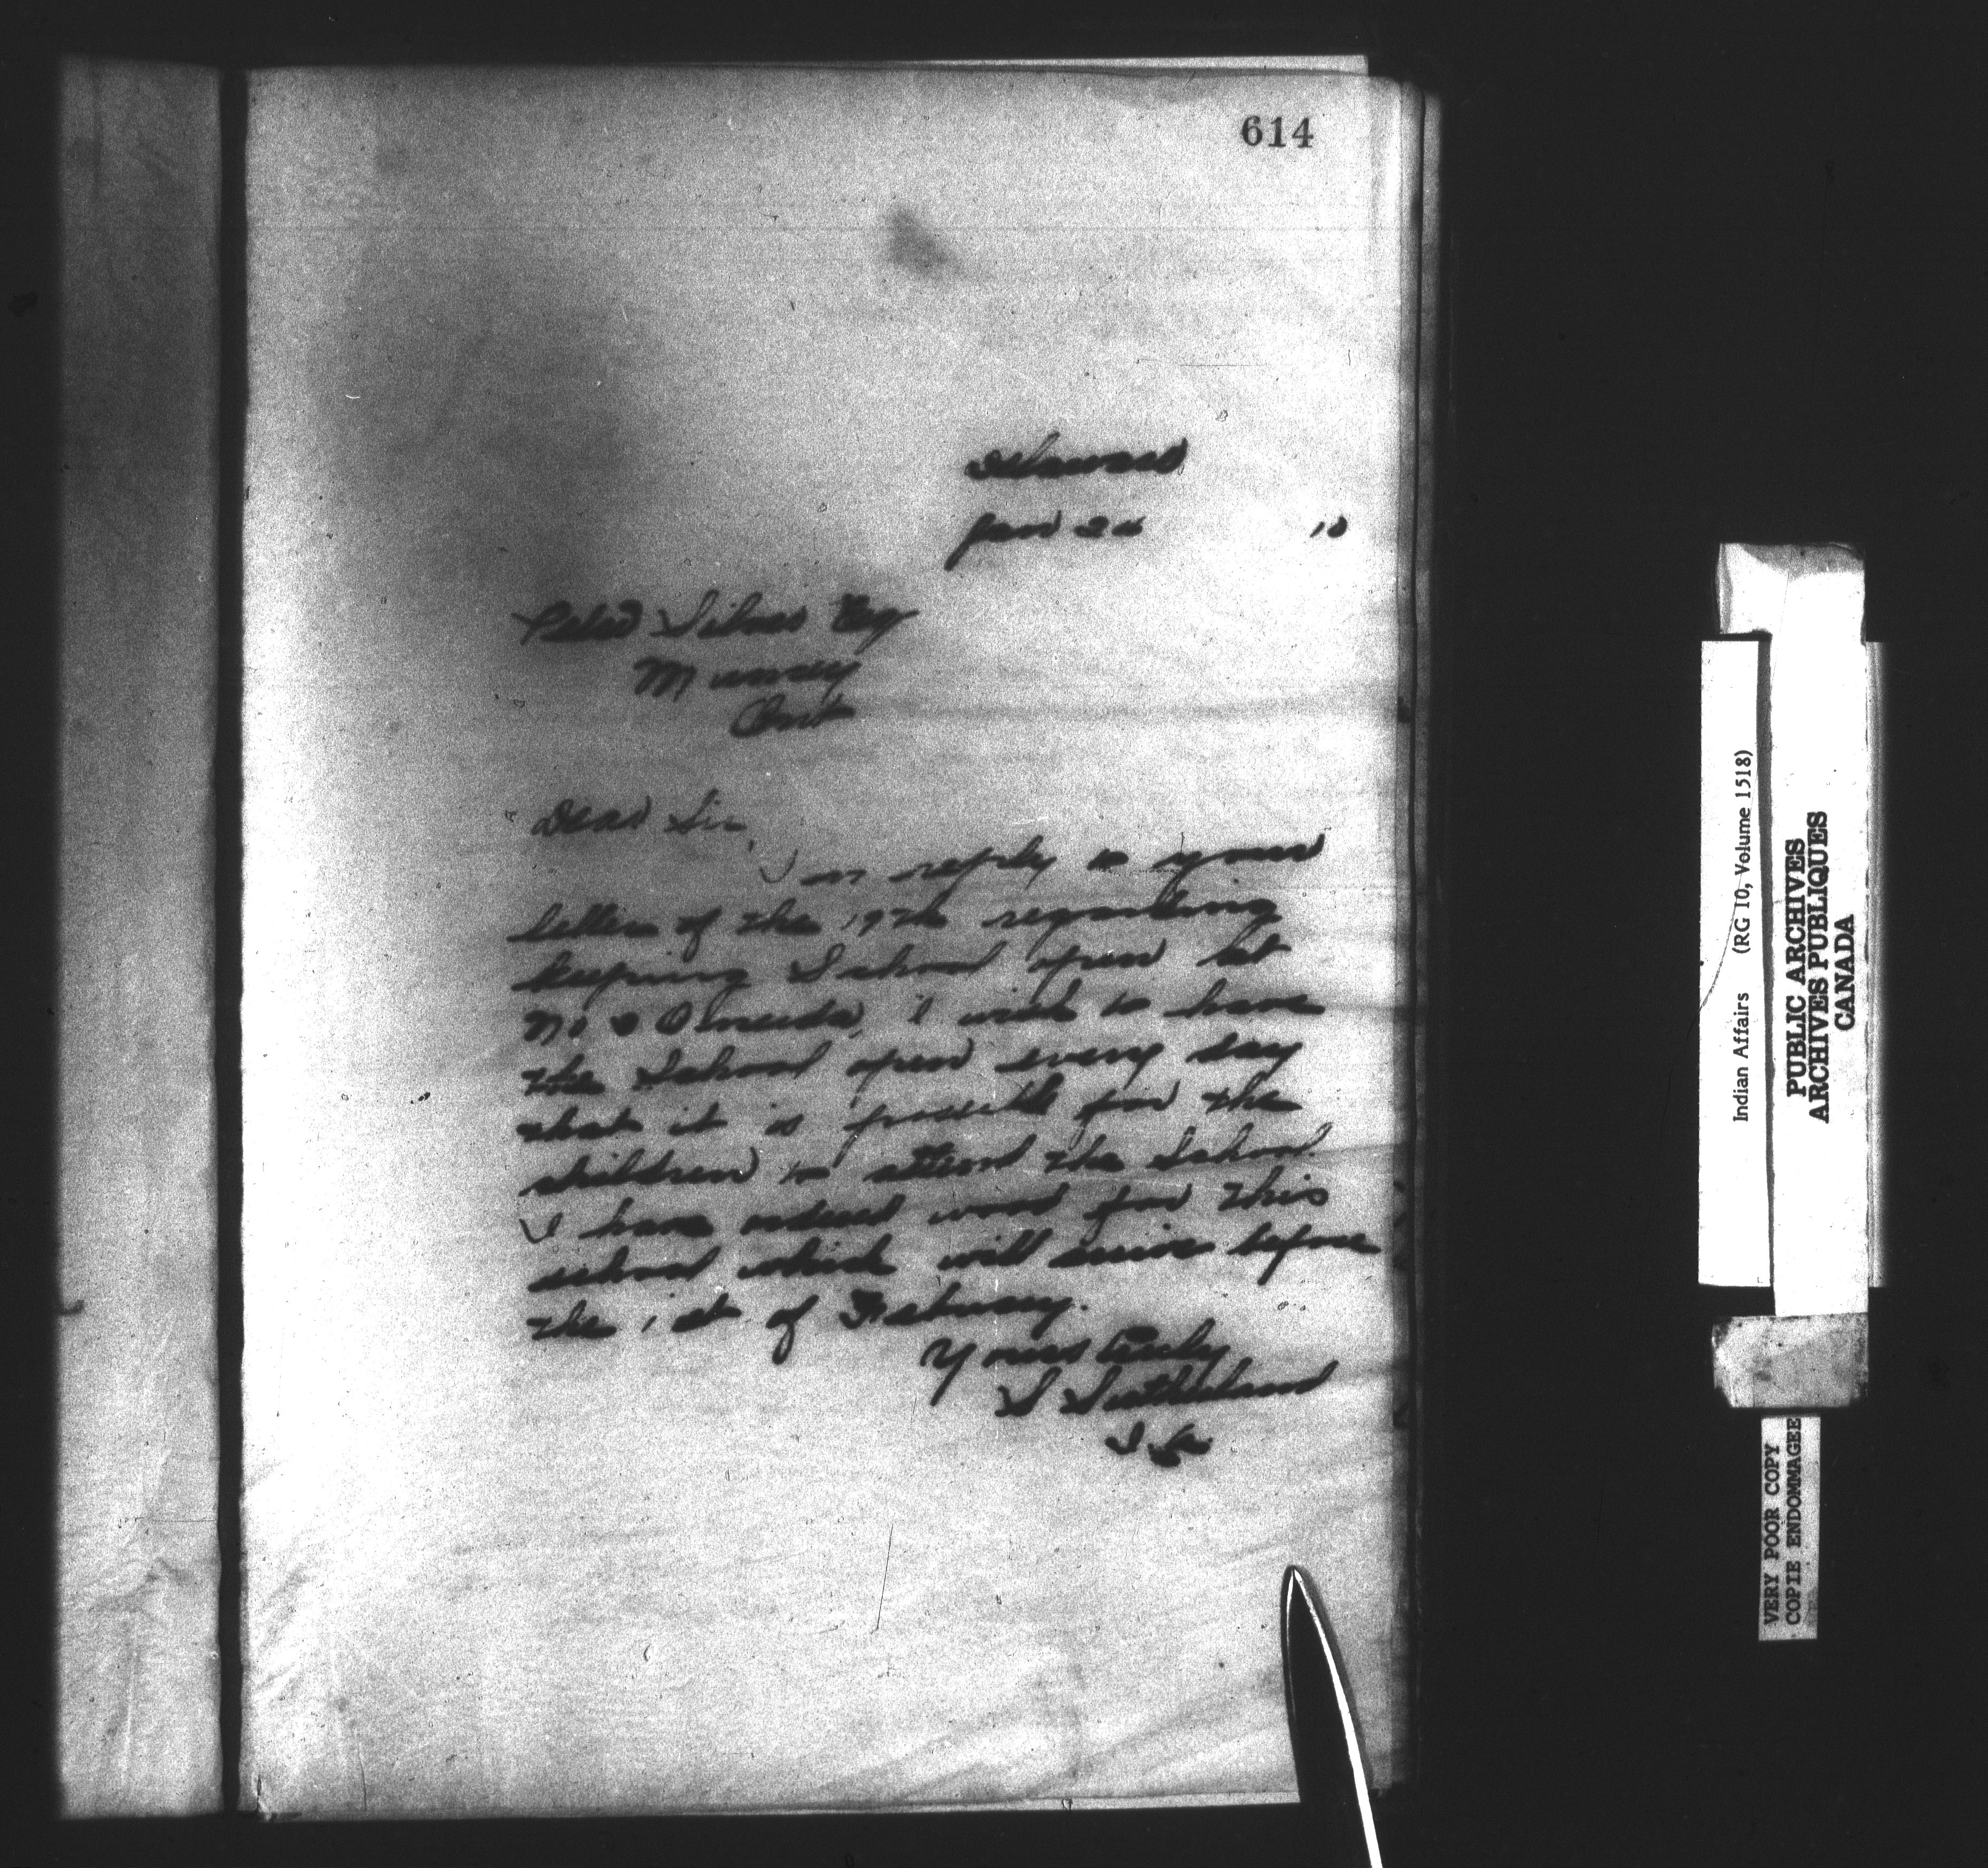 614
Delaware
Jan 24 10
Peter Silver Esq
Muncey
Ont
Dear Sir,
In reply to your
letter of the 19th regarding
keeping School open at
No. Oneida, I wish to have
the School open every day
that it is possible for the
children to attend the School.
I have ordered wood for this
school which will arrive before
the 1st of February.
Yours truly
S Sutherland
I. A.
Indian Affairs (RG 10, Volume 1518)
PUBLIC ARCHIVES
ARCHIVES PUBLIQUES
CANADA
VERY POOR COPY
COPIE ENDOMMAGEE